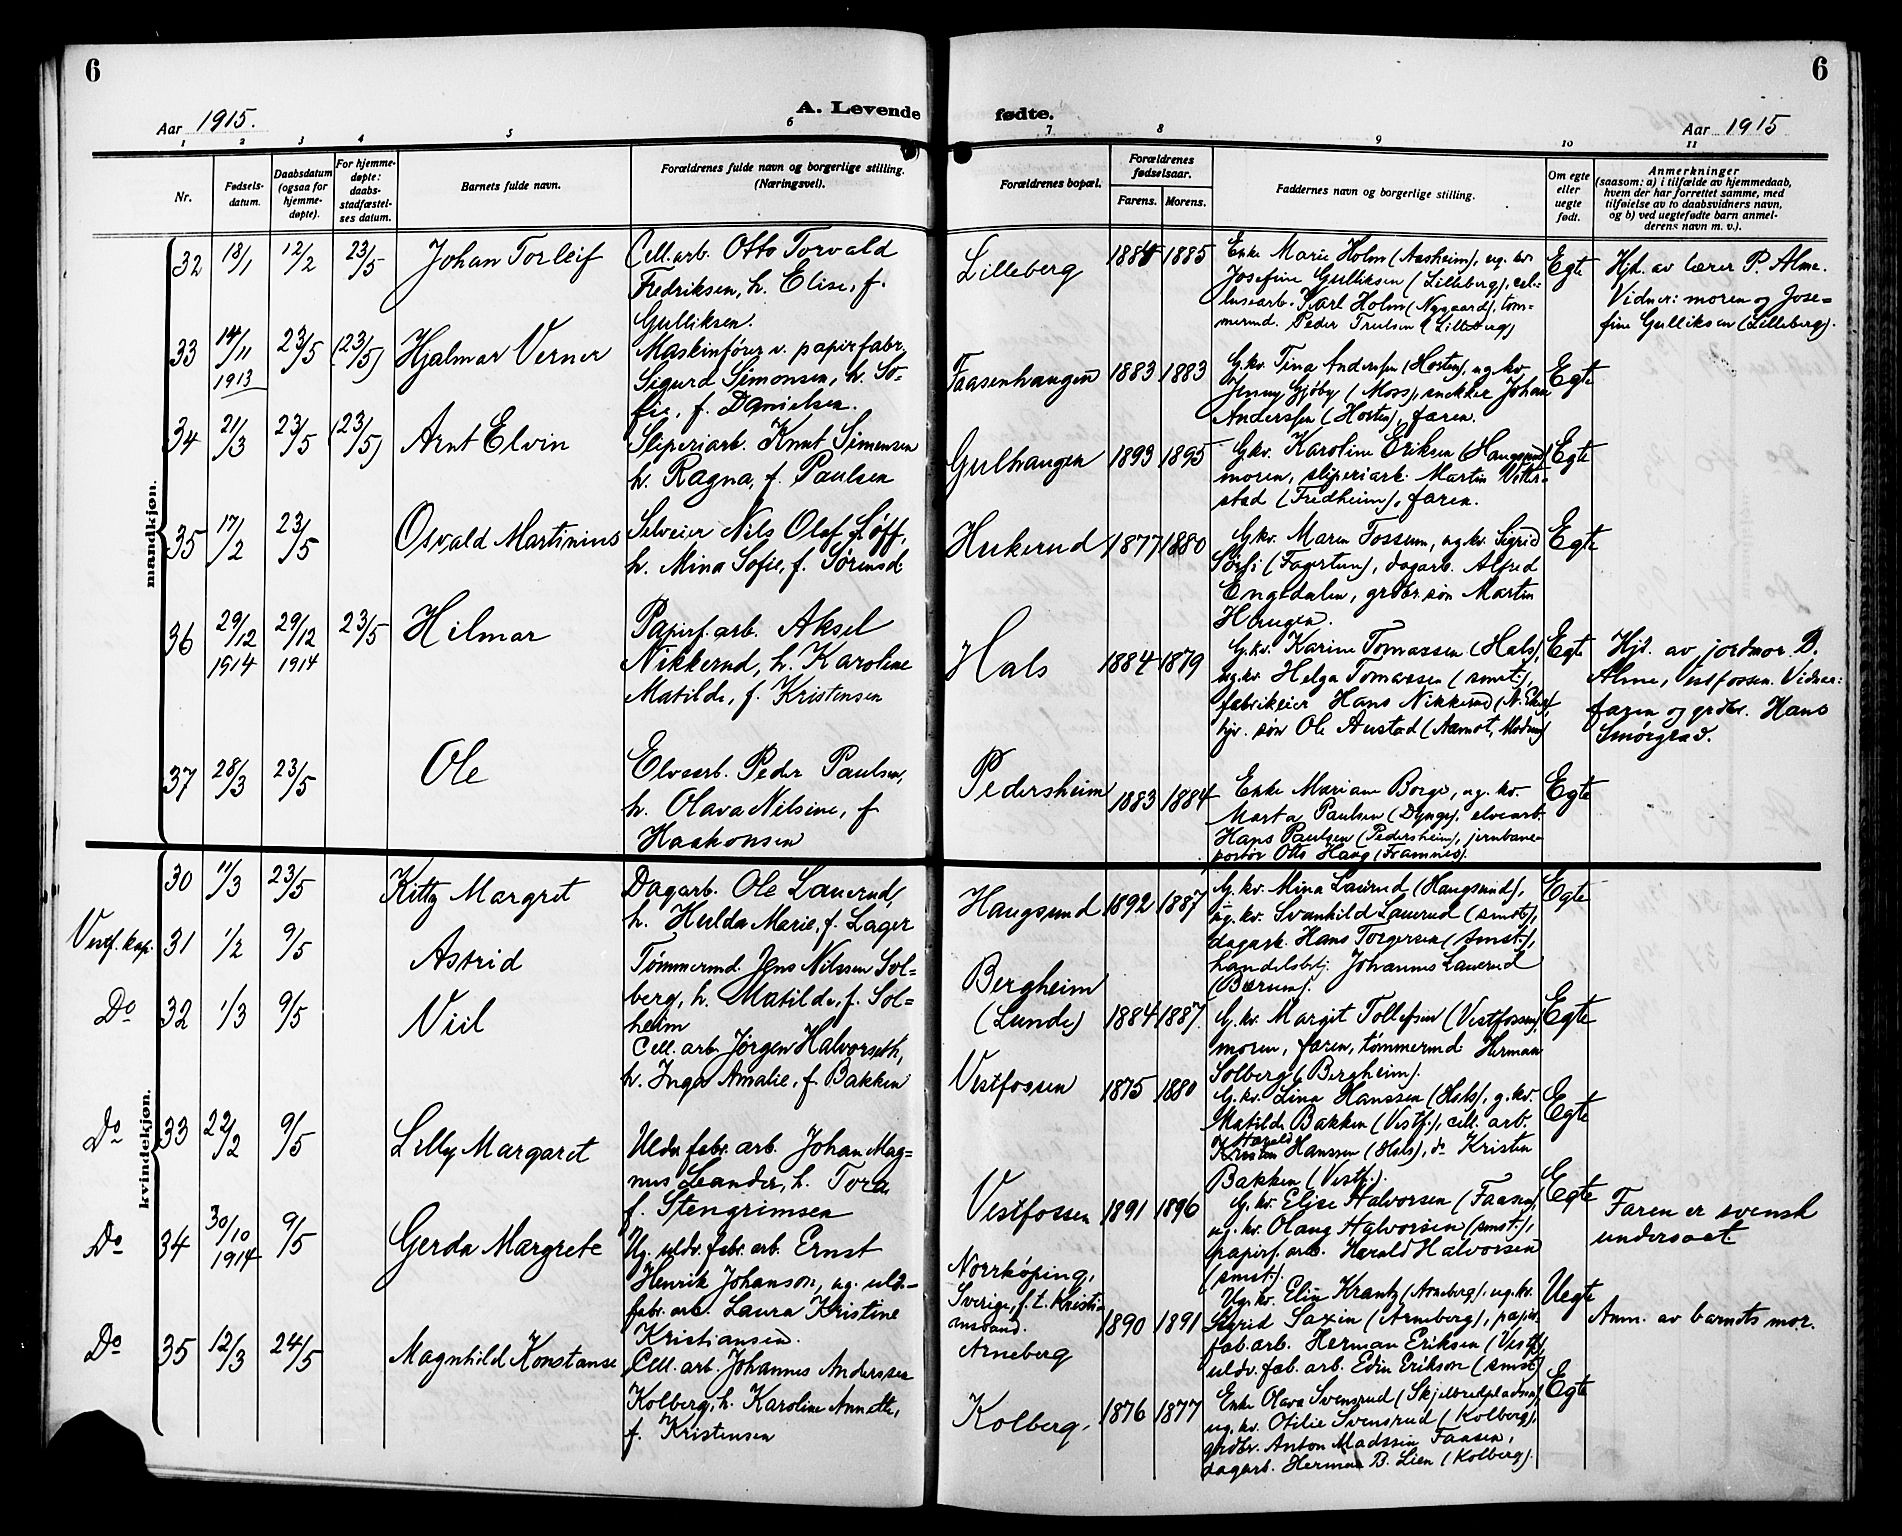 6
Aar 1915.
A. Levende
1 2 3 4 5 6
Nr.
Fødsels-
datum.
Daabsdatum
(ogsaa for
hjemme-
døpte).
For hjemme-
døpte:
daabs-
stadfæstel-
ses datum.
Barnets fulde navn.
Forældrenes fulde navn og borgerlige stilling.
(Næringsvei).
mandkjøn.
32 18/1 12/2 23/5 Johan Torleif
Cell.arb. Otto Torvald
Fredriksen, h. Elise, f.
Gulliksen.
33 14/11 1913 23/5 (23/5) Hjalmar Verner
Maskinfører v. papirfabr.
Sigurd Simonsen, h. So-
fie, f. Danielsen.
34 21/3 23/5 (23/5) Arnt Elvin
Sliperiarb. Knut Simensen
h. Ragna, f. Paulsen
35 17/2 23/5 Osvald Martinius
Selveier Nils Olaf Løff,
h. Mina Sofie, f. Sørensd.
36 29/12 1914 29/12 1914 23/5 Hilmar
Papirf.arb. Aksel
Nikkerud, h. Karoline
Matilde, f. Kristensen
37 28/3 23/5 Ole
Elvearb. Peder Paulsen,
h. Olava Nilsine, f
Haakonsen
kvindekjøn.
30 11/3 23/5 Kitty Margret
Dagarb. Ole Lauerud,
h. Hulda Marie, f. Lager
Vestf. kap. 31 1/2 9/5 Astrid
Tømmermd. Jens Nilssen Sol-
berg, h. Matilde, f. Sol-
heim
Do 32 1/3 9/5 Viil
Cell. arb. Jørgen Halvorseth,
h. Inga Amalie, f. Bakken
Do 33 22/2 9/5 Lilly Margaret
Uldv. fabr. arb. Johan Mag-
nus Leander, h. Tora
f. Stengrimsen
Do 34 30/10 1914 9/5 Gerda Margrete
Ug. uldv. fabr. arb. Ernst
Henrik Johanson, ug. uldv-
fabr. arb. Laura Kristine
Kristiansen.
Do 35 12/3 24/5 Magnhild Konstanse
Cell. arb. Johannes Anderssen
Kolberg, h. Karoline Annette,
f. Kristensen
6
fødte.
Aar 1915
7 8 9 10 11
Forældrenes bopæl.
Forældrenes
fødselsaar.
Farens. Morens.
Faddernes navn og borgerlige stilling.
Om egte
eller
uegte
født.
Anmerkninger
(saasom: a) i tilfælde av hjemmedaab,
hvem der har forrettet samme, med
tilføielse av to daabsvidners navn,
og b) ved uegtefødte barn anmel-
derens navn m. v.).
Lilleberg 1885
Enke Marie Holm (Aasheim), ug. kv.
Josefine Gulliksen (Lilleberg), cel-
lulosearb. Karl Holm (Nygaard), tøm-
mermd. Peder Trulsen (Lilleberg)
Egte
Hjd. av lærer P. Alme.
Vidner: moren og Jose-
fine Gulliksen (Lilleberg).
Faasenhaugen 1883 1883
G.kv. Tina Anderssen (Horten), ug. kv
Jenny Gjøby (Moss), snekker Johan
Anderssen (Horten), faren.
Egte
Gulhaugen 1893 1895
G.kv. Karoline Eriksen (Haugsund)
moren, sliperiarb. Martin Vetter-
stad (Fredheim), faren.
Egte
Hukerud 1877 1880
G.kv. Maren Fossum, ug. kv. Sigrid
(Fagertun), dagarb. Alfred
Engedalen, grdbr. søn Martin
Haugen.
Egte
Hals 1884 1879
G.kv. Karine Tomassen (Hals),
ug.kv. Helga Tomassen (smst.),
fabrikeier Hans Nikkerud (N. Eker)
Ole Austad (Aamot, Modum)
Egte
Hjd. av jordmor D.
Alme, Vestfossen. Vidner:
faren og grdbr. Hans
Smørgrad.
Pedersheim 1883 1884
Enke Mariane Borge, ug. kv.
Marta Paulsen (Dynge), elvearb.
Hans Paulsen (Pedersheim), jernbane-
portør Otto Haug (Framnes).
Egte
Haugsund 1892 1887
G. kv. Mina Lauerud (Haugsund),
ug. kv. Svanhild Lauerud (smst.),
dagarb. Hans Torgersen (smst.),
handelsbetj. Johannes Lauerud
(Bærum).
Egte
Bergheim
(Lunde) 1884 1887
G. kv. Margit Tollefsen (Vestfossen),
moren, faren, tømmermd. Herman
Solberg (Bergheim).
Egte
Vestfossen 1875 1880
G. kv. Lina Hanssen (Hals), g. kv.
Matilde Bakken (Vestf.), cell. arb.
Harald
Hanssen (Hals), do Kristen
Bakken (Vestf.).
Egte
Vestfossen 1891 1896
G. kv. Elise Halvorsen (Faasen),
ug. kv. Olaug Halvorsen (smst.),
papirf. arb. Harald Halvorsen
(smst.).
Egte
Faren er svensk
undersaat
Norrköping,
Sverige, f. t. Kristi-
ansand.
Arneberg 1890 1891
Ug. kv. Elin Krantz (Arneberg), ug. kv.
Sigrid Saxin (Arneberg), papir-
fab. arb. Herman Eriksen (Vestf.),
uldv. fab. arb. Edin Erikson (smst.)
Uegte
Anm. av barnets mor.
Kolberg. 1876 1877
Enke Olava Svensrud (Skjelbredpladsen),
ug. kv. Otilie Svensrud (Kolberg),
grdbr. Anton Madssen Faasen,
dagarb. Herman B. Lien (Kolberg).
Egte